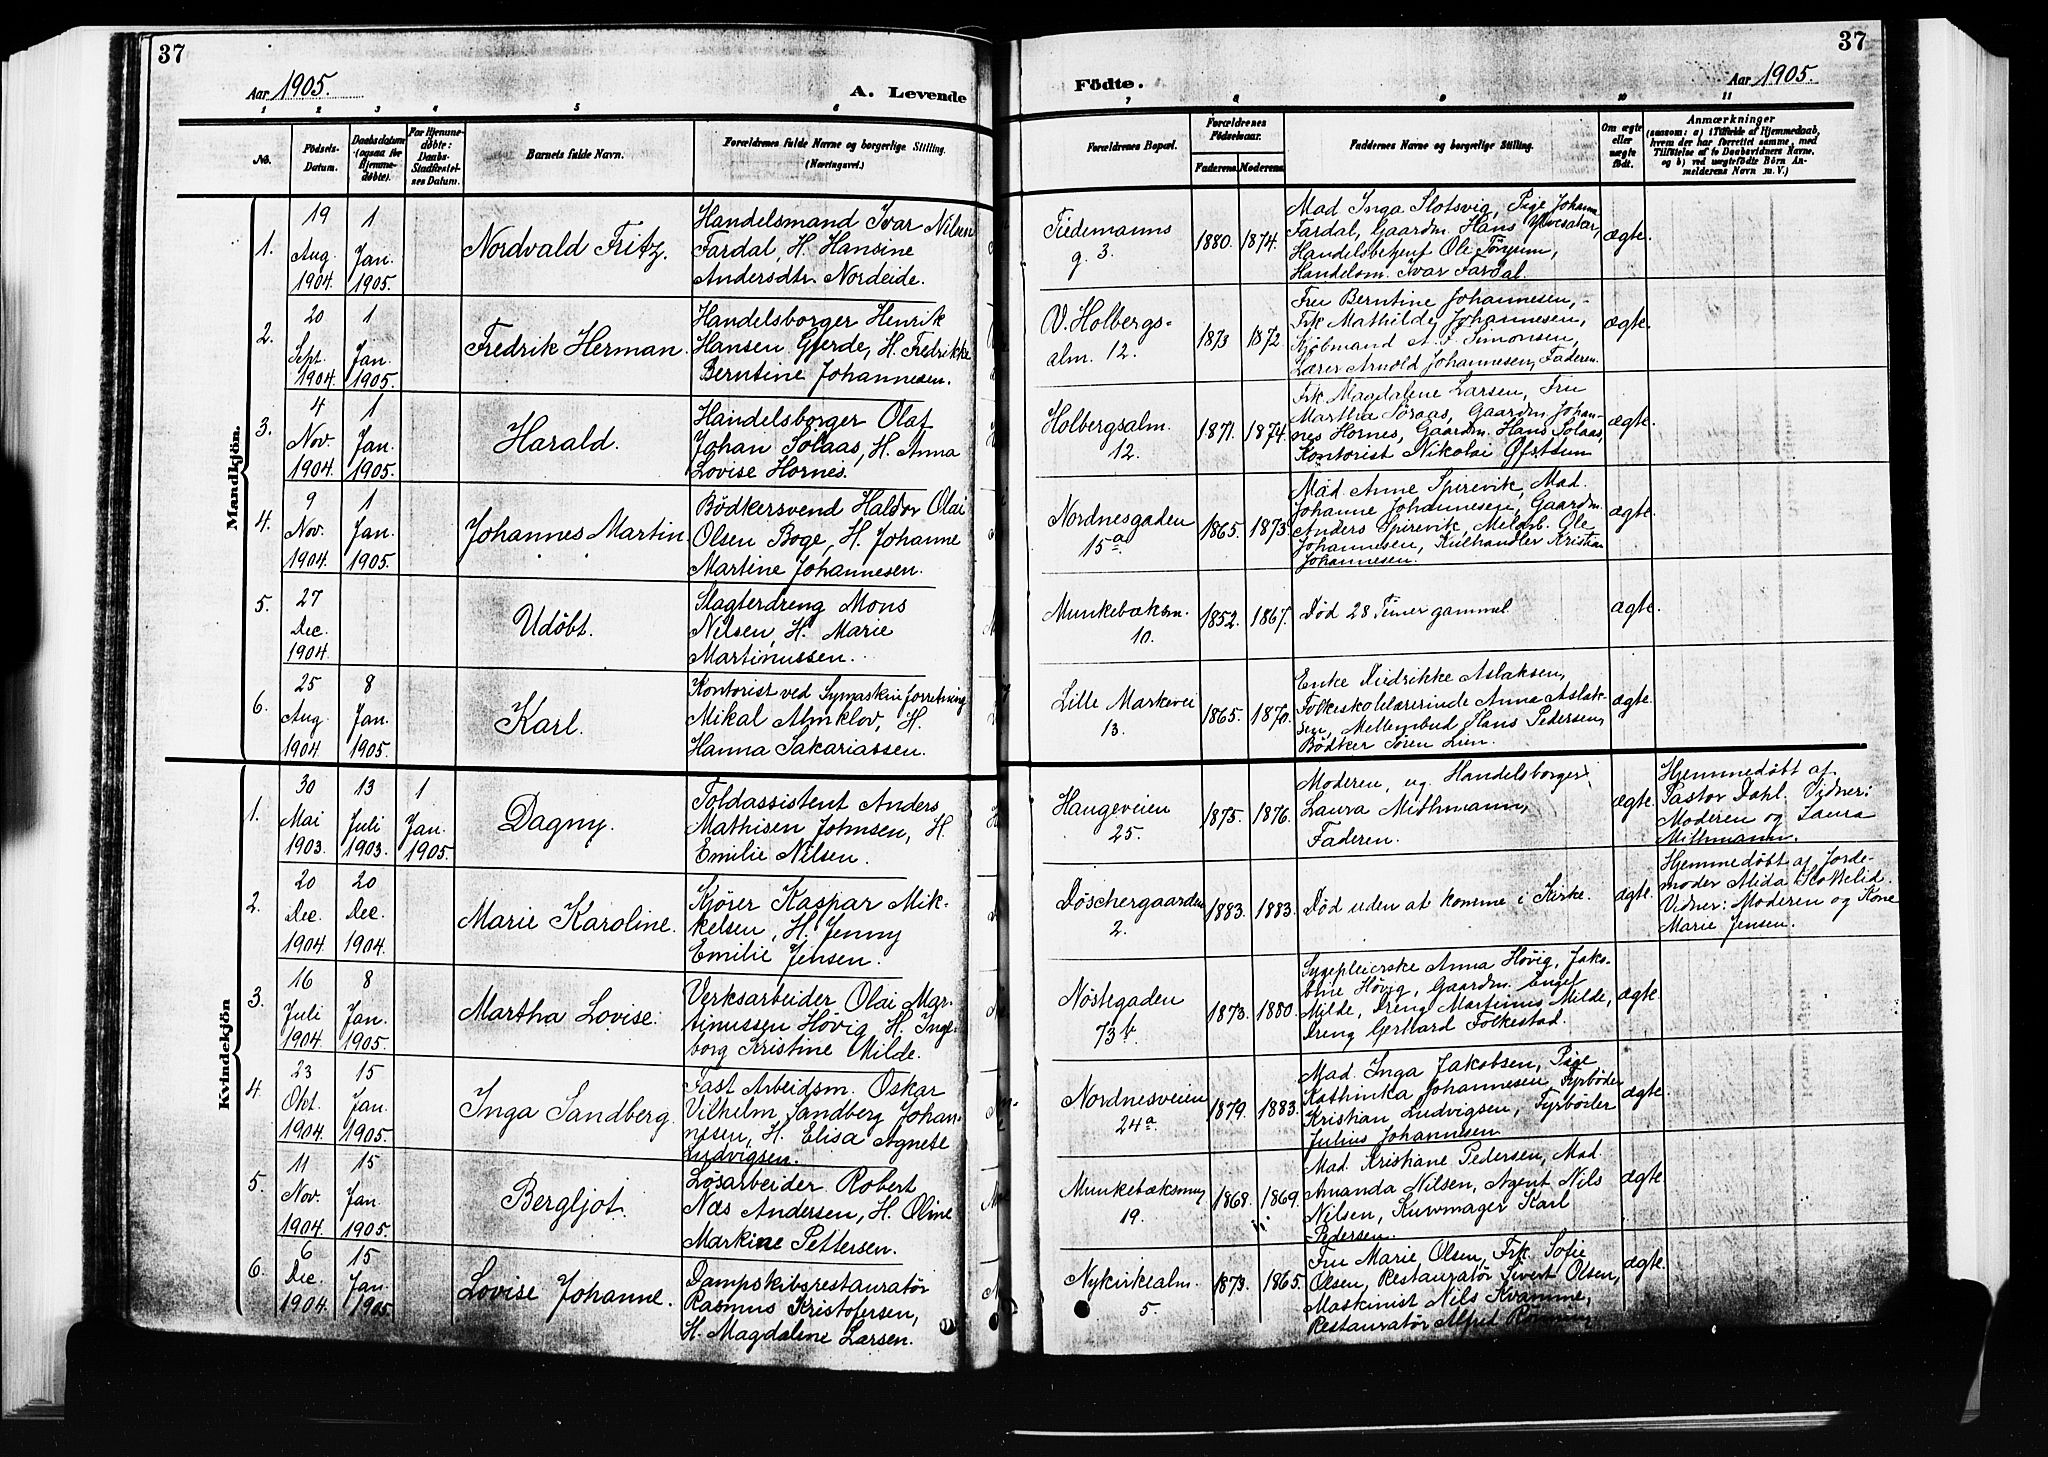 37
Aar 1905.
A. Levende
1 2 3 4 5 6
No.
Födsels-
Datum.
Daabsdatum
(ogsaa for
Hjemme-
döbte).
For Hjemme-
döbte:
Daabs-
Stadfæstel-
ses Datum.
Barnets fulde Navn.
Forældrenes fulde Navne og borgerlige Stilling.
(Næringsvei.)
Mandkjön.
1.
19
Aug.
1904.
1
Jan.
1905.
Nordvald Fritz.
Handelsmand Ivar Nilsen
Fardal, H. Hansine
Andersdtr. Nordeide.
2.
20
Sept.
1904.
1
Jan.
1905.
Fredrik Herman.
Handelsborger Henrik
Hansen Gjerde, H. Fredrikke
Berntine Johannesen.
3.
4
Nov.
1904.
1
Jan.
1905.
Harald.
Handelsborger Olaf
Johan Solaas, H. Anna
Lovise Hornes.
4.
9
Nov.
1904.
1
Jan.
1905.
Johannes Martin.
Bödkersvend Haldor Olai
Olsen Boge, H. Johanne
Martine Johannesen.
5.
27
Dec.
1904.
Udöbt.
Slagterdreng Mons
Nilsen, H. Marie
Martinussen.
6.
25
Aug.
1904.
8
Jan.
1905.
Karl.
Kontorist ved Symaskinforretning
Mikal Almklov, H.
Hanna Sakariassen.
Kvindekjön
1.
30
Mai
1903.
13
Juli
1903.
1
Jan.
1905.
Dagny.
Toldassistent Anders
Mathisen Johnsen, H.
Emilie Nilsen.
2.
20
Dec.
1904.
20
Dec.
1904.
Marie Karoline.
Kjörer Kaspar Mik-
kelsen, H. Jenny
Emilie Jensen.
3.
16
Juli
1904.
8
Jan.
1905.
Martha Lovise.
Verksarbeider Olai Mar-
tinussen Hövig, H. Inge-
borg Kristine Milde.
4.
23
Okt.
1904.
15
Jan.
1905.
Inga Sandberg.
Fast Arbeidsm. Oskar
Vilhelm Sandberg Johan-
nesen, H. Elisa Agnete
Ludvigsen.
5.
11
Nov.
1904.
15
Jan.
1905.
Bergljot.
Løsarbeider Robert
Næs Andersen, H. Oline
Markine Pettersen.
6.
6
Dec.
1904.
15
Jan.
1905.
Lovise Johanne.
Dampskibsrestauratør
Rasmus Kristofersen,
H. Magdalene Larsen.
37
Födte.
Aar 1905.
7 8 9 10 11
Forældrenes Bopæl.
Forældrenes
Födselsaar.
Faderens. Moderens.
Faddernes Navne og borgerlige Stilling.
Om ægte
eller
uægte
født.
Anmærkninger
(saasom: a) i Tilfælde af Hjemmedaab,
hvem der har forrettet samme, med
Tilføielse af to Daabsvidners Navne,
og b) ved uægtefødte Børn An-
melderens Navn m. V.)
Tiedemanns
g. 3.
1880. 1874.
Mad Inga Slotsvig, Pige Johanna
Fardal, Gaardm. Hans
Handelsbetjent Ole
Handelsm. Ivar Fardal.
ægte.
V. Holbergs-
alm. 12.
1873 1872
Fru Berntine Johannesen,
Frk Mathilde Johannesen,
Kjöbmand A. F. Simonsen,
Lærer Arnold Johannesen, Faderen.
ægte.
Holbergsalm.
12.
1871. 1874.
Frk Magdalene Larsen, Fru
Martha Söraas, Gaardm. Johan-
nes Hornes, Gaardm. Hans Solaas,
Kontorist Nikolai Øfstsun
ægte.
Nordnesgaden
15a
1865. 1873.
Mad. Anne Spirevik, Mad.
Johanne Johannesen, Gaardm.
Anders Spirevik, Melarb. Ole
Johannesen, Kulhandler Kristian
Johannesen.
ægte.
Munkebæksm.
10.
1852. 1867.
Død 28 Timer gammel.
ægte.
Lille Markevei
13.
1865. 1870.
Enke Didrikke Aslaksen,
Folkeskolelærerinde Anna Aslak-
sen, Mellembud Hans Pedersen,
Bödker Sören Lien.
ægte.
Haugeveien
25.
1875. 1876.
Moderen, ug. Handelsborger
Laura Mithmann,
Faderen.
ægte.
Hjemmedöbt af
Pastor Dahl. Vidner:
Moderen og Laura
Mithmann.
Døschergaarden
2.
1883. 1883.
Død uden at komme i Kirke.
ægte.
Hjemmedöbt af Jorde-
moder Alida Slottelid.
Vidner: Moderen og Kone
Marie Jensen.
Nøstegaden
73b.
1873. 1880.
Sygepleierske Anna Hövig, Jako-
bine Hövig, Gaardm. Engel
Milde, Dreng Martinus Milde,
Dreng Gerhard Folkestad.
ægte.
Nordnesveien
24a.
1879. 1883.
Mad. Inga Jakobsen, Pige
Kathinka Johannesen, Fyrböder
Kristian Ludvigsen, Fyrböder
Julius Johannesen
ægte.
Munkebæksmug
19.
1868. 1869.
Mad. Kristiane Pedersen, Mad.
Amanda Nilsen, Agent Nils
Nilsen, Kurvmager Karl
Pedersen.
ægte.
Nykirkealm.
5.
1873. 1865.
Fru Marie Olsen, Frk. Sofie
Olsen, Restauratør Sivert Olsen,
Maskinist Nils Kvamme,
Restauratør Alfred Rönning
ægte.